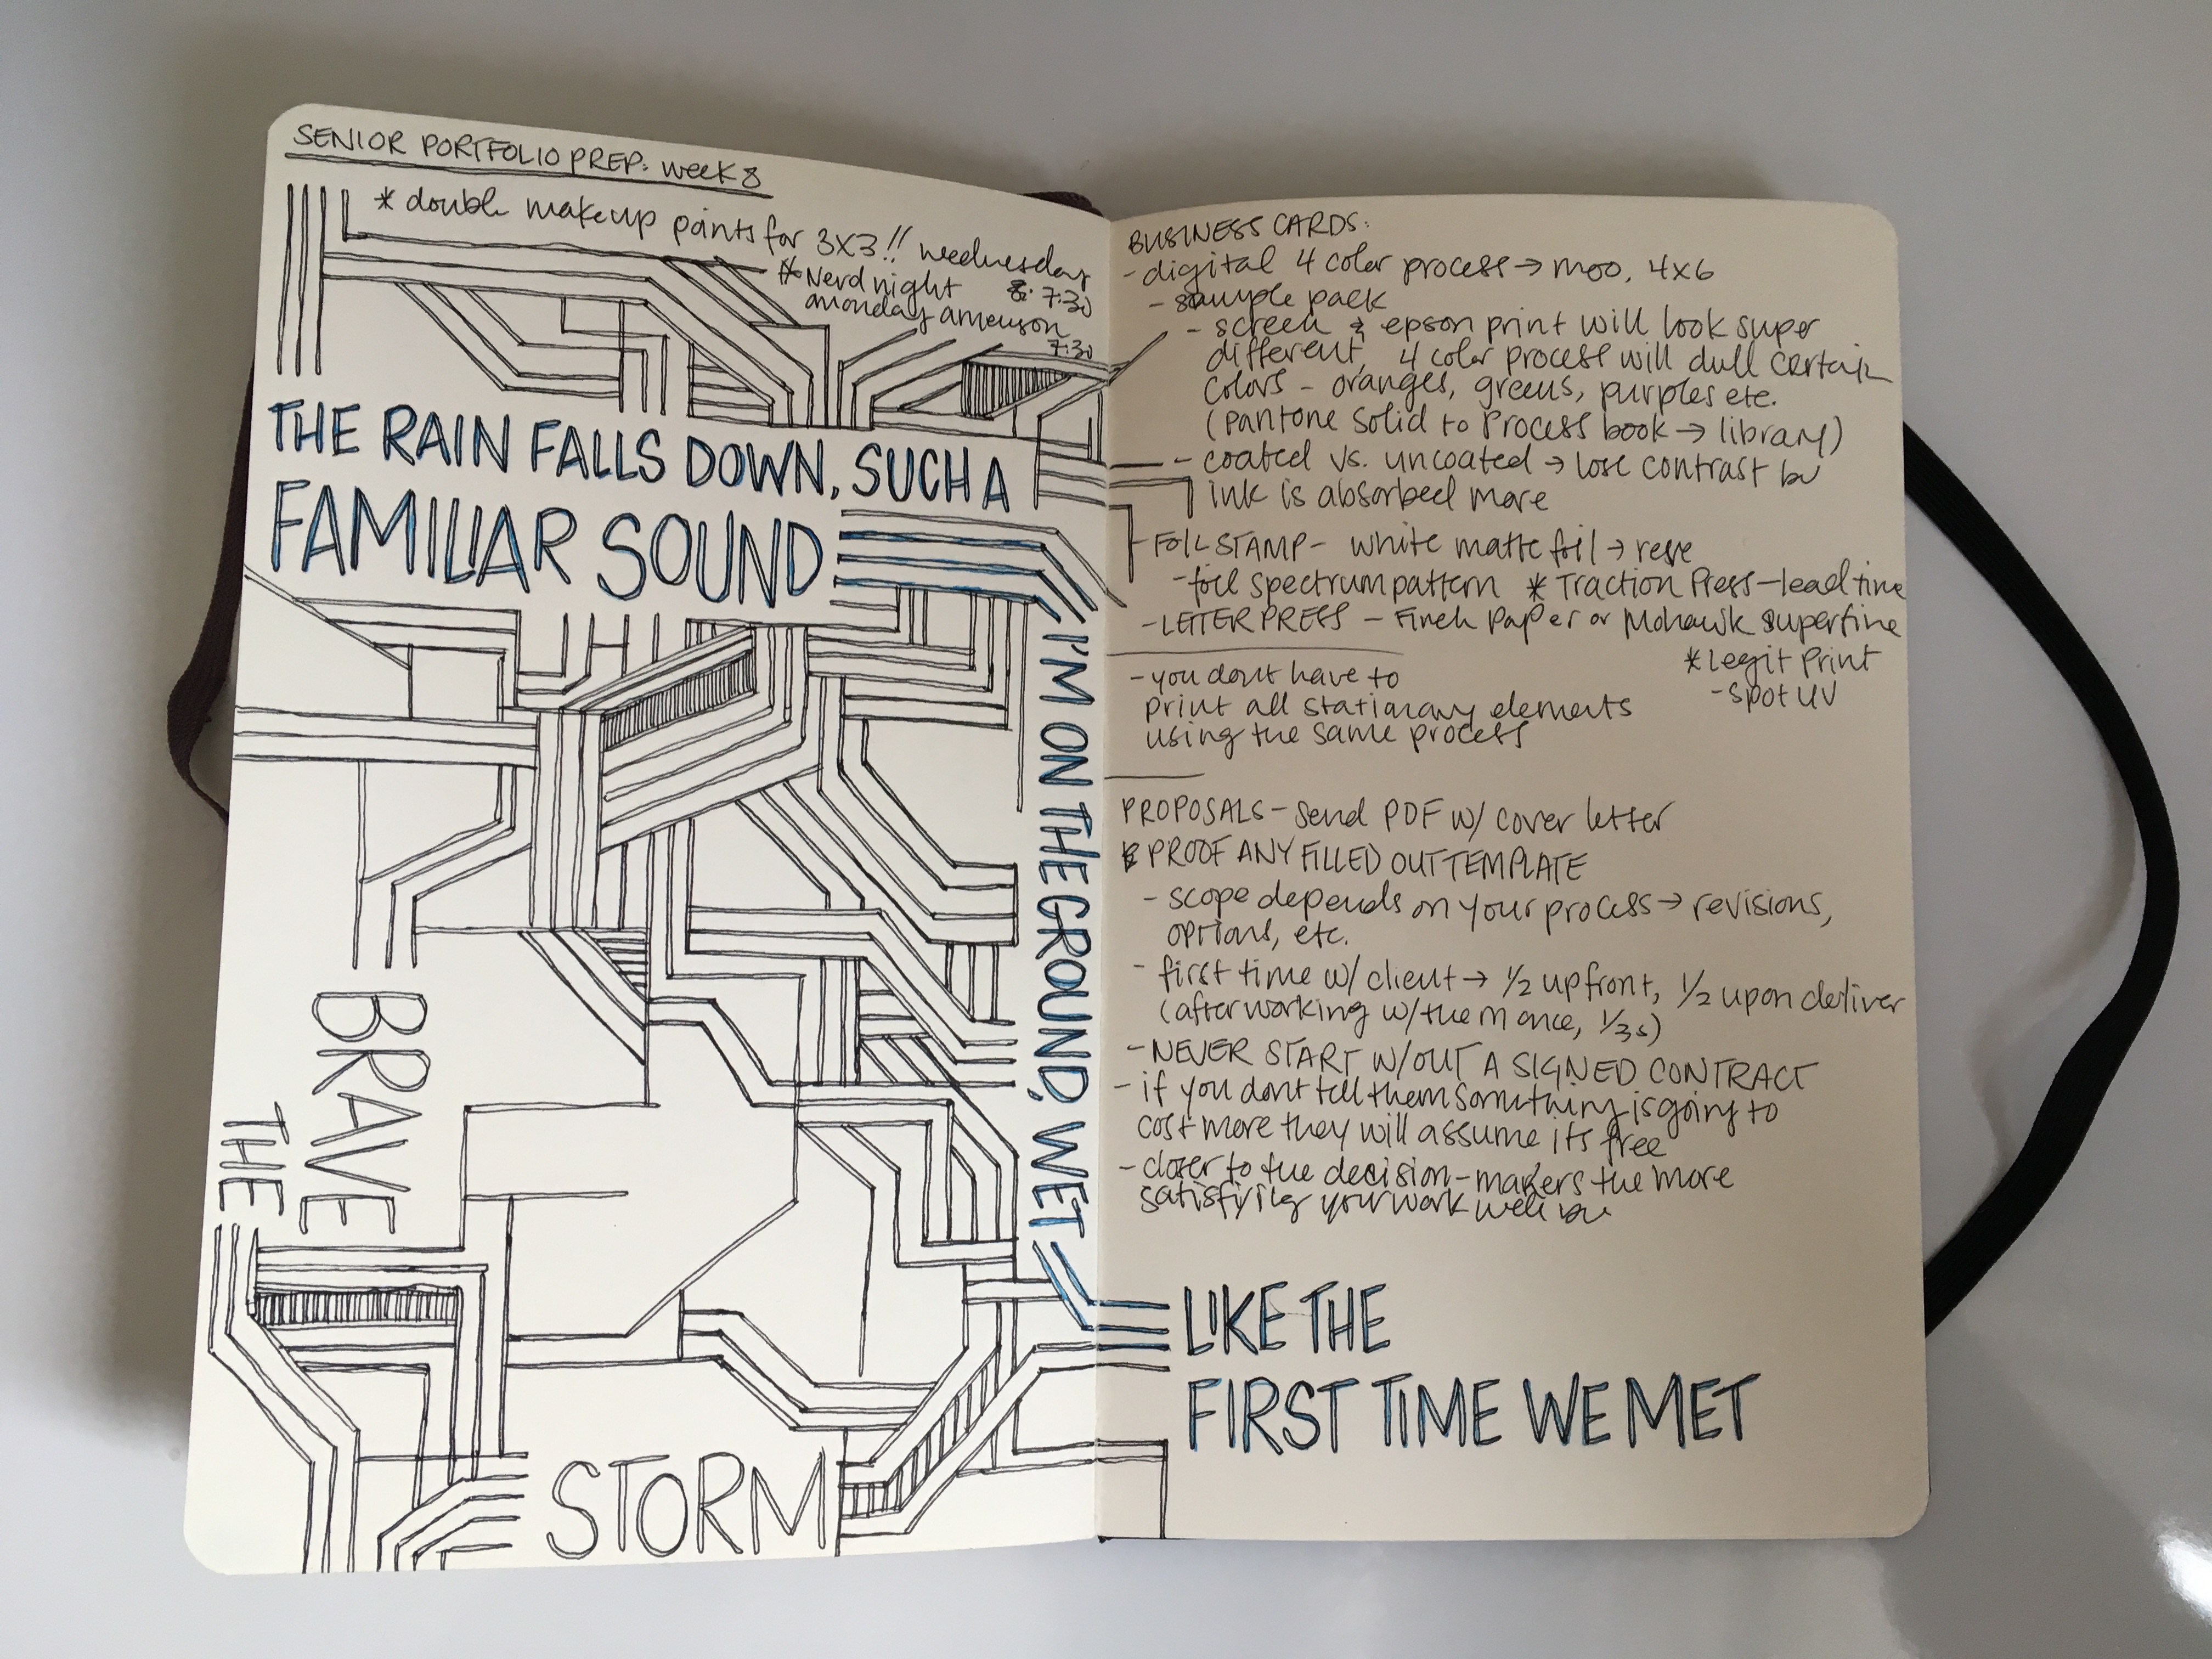 SENIOR PORTFOLIO PREP: week 8
* double makeup points for 3X3!! wednesday
7:30
* Nerd night
monday
7:30
THE RAIN FALLS DOWN, SUCH A
FAMILIAR SOUND
I'M ON THE GROUND, WET
BRAVE
THE
STORM
BUSINESS CARDS:
- digital 4 color process → moo, 4x6
- sample pack
- screen & epson print will look super
different, 4 color process will dull certain
colors - oranges, greens, purples etc.
(pantone solid to process book → library)
- coated vs. uncoated → lose contrast bc
ink is absorbed more
- FOIL STAMP - white matte foil →
- foil spectrum pattern * Traction Press - lead time
- LETTER PRESS - Finch Paper or Mohawk superfine
* Legit Print
- spot UV
- you dont have to
print all stationary elements
using the same process
PROPOSALS - send PDF w/ cover letter
PROOF ANY FILLED OUT TEMPLATE
- scope depends on your process → revisions,
options, etc.
- first time w/ client → 1/2 upfront, 1/2 upon deliver
(after working w/ them once, 1/3s)
- NEVER START W/OUT A SIGNED CONTRACT
- if you dont tell them something is going to
cost more they will assume its free
- closer to the decision-makers the more
satisfying your work will be
LIKE THE
FIRST TIME WE MET